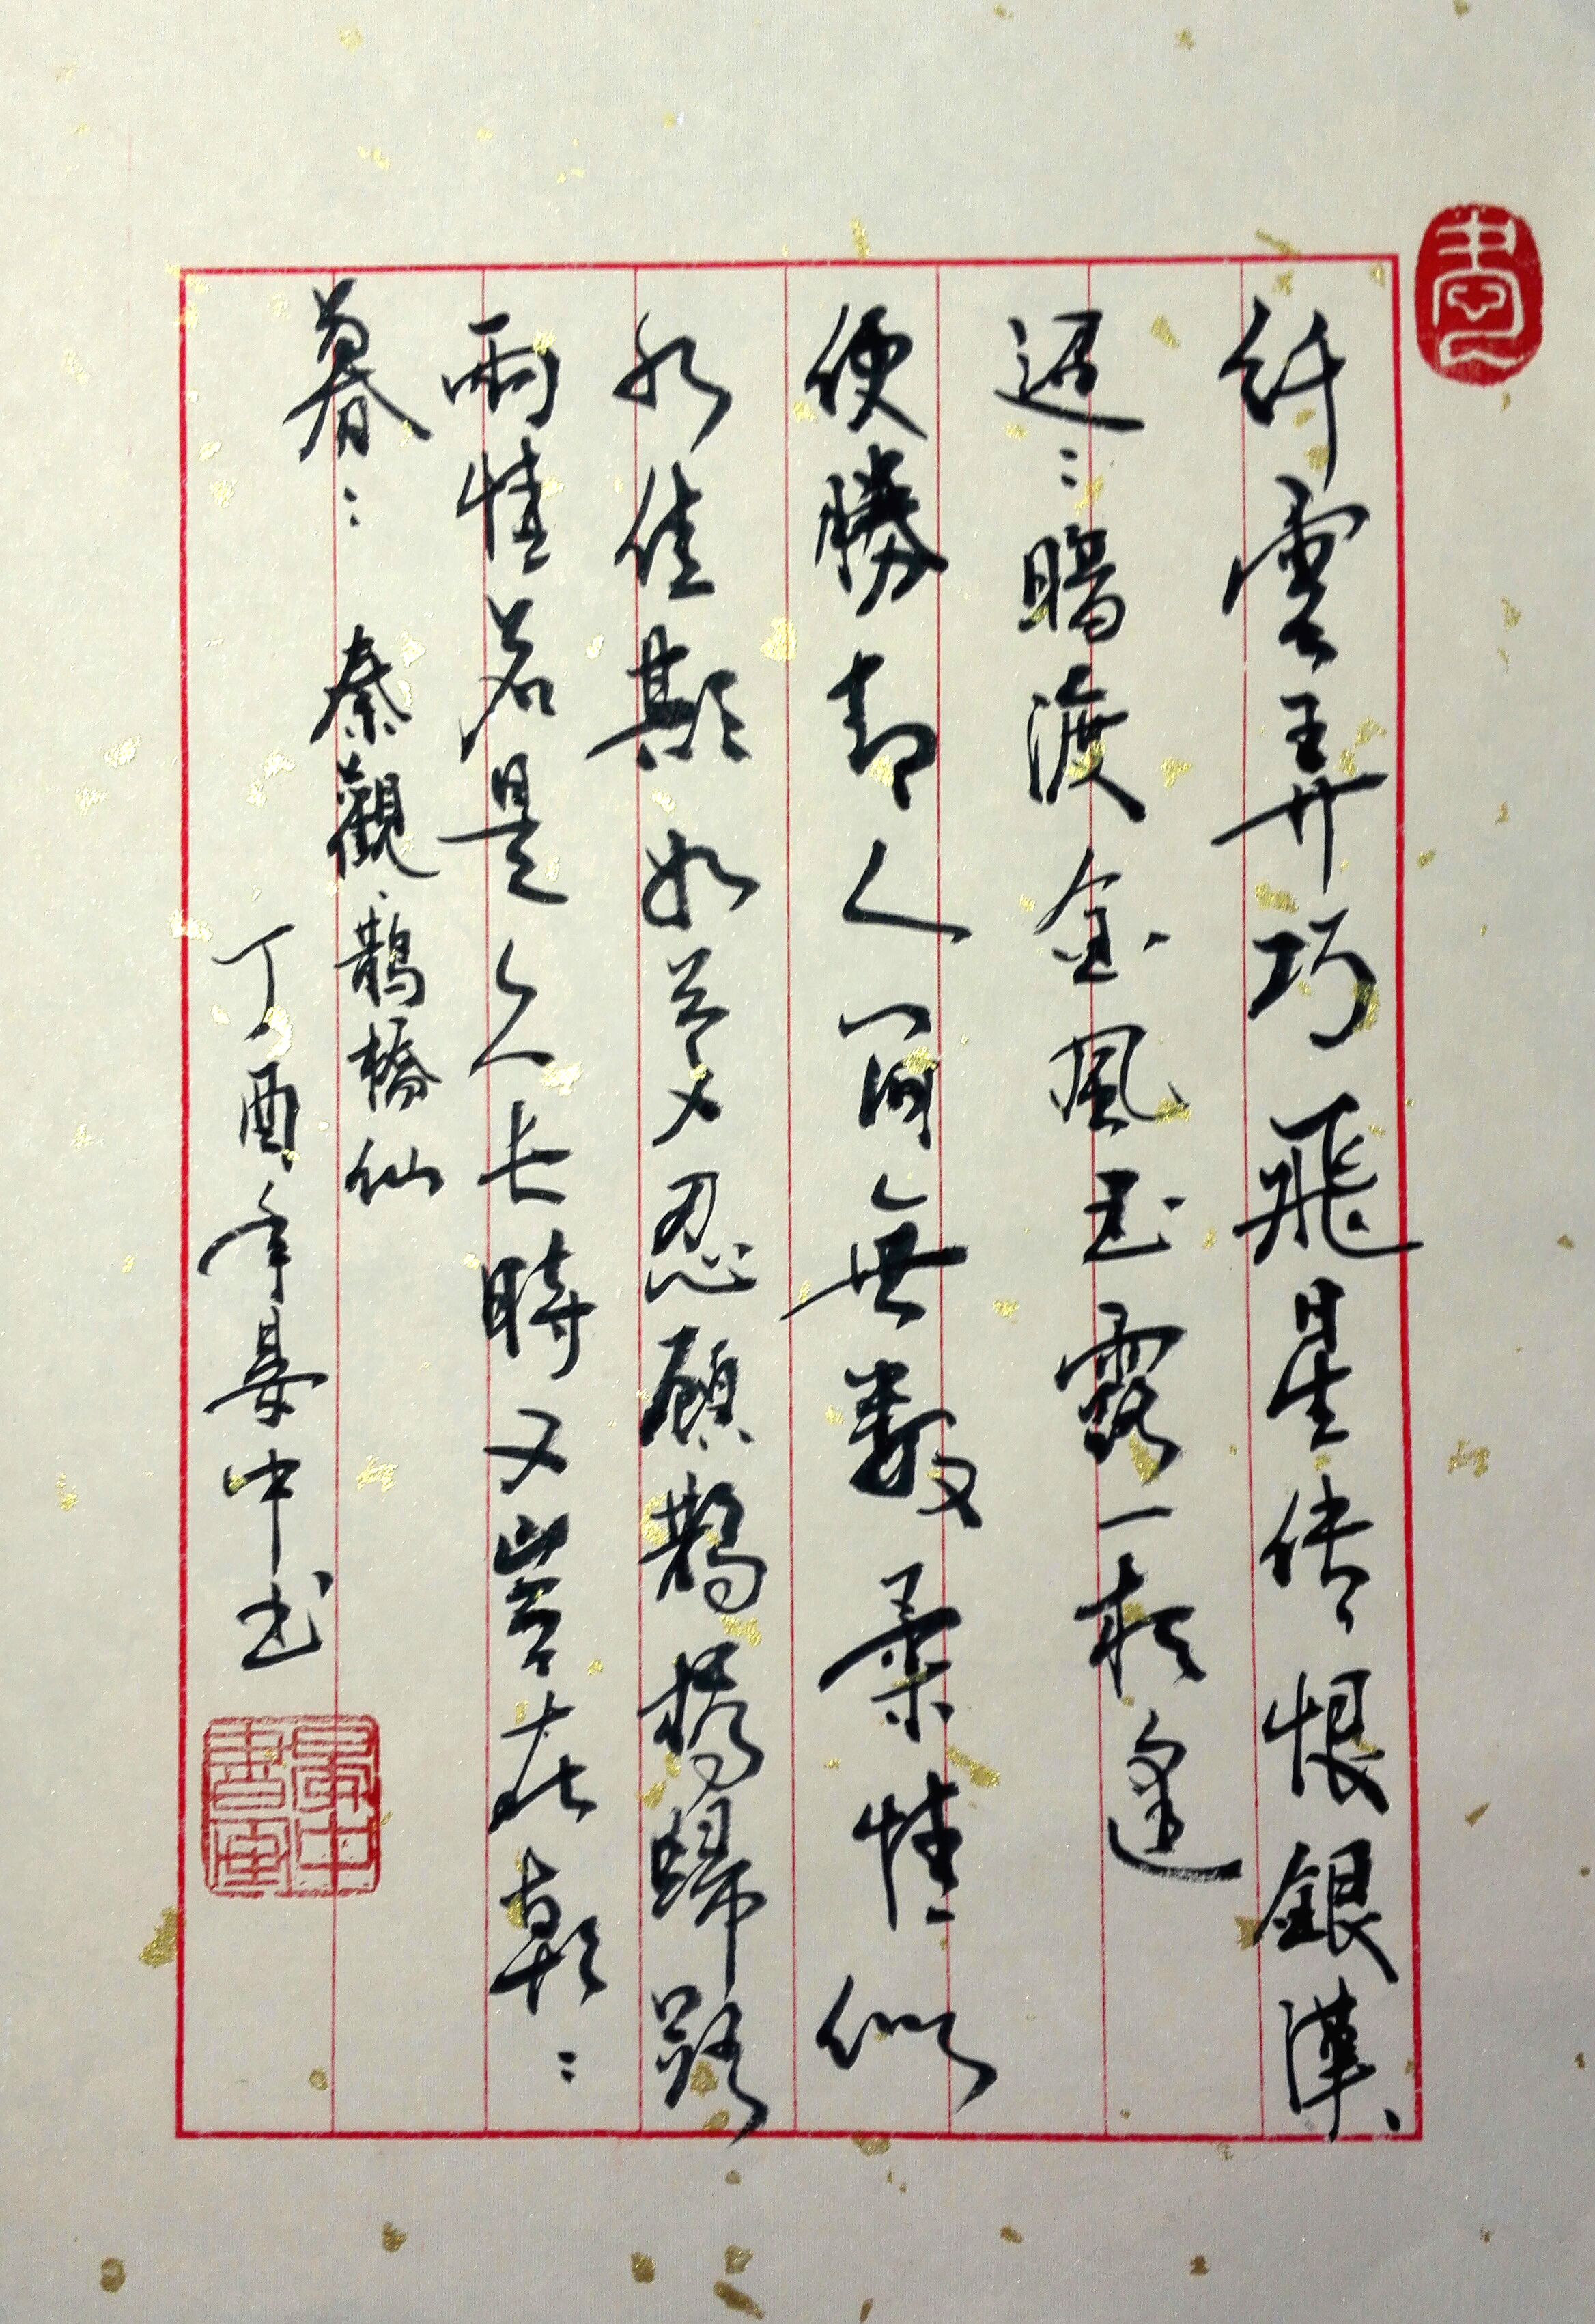 纤雲弄巧飛星传恨銀漢
迢〻暗渡金風玉露一相逢
便勝却人间無數柔情似
水佳期如夢忍顧鵲橋歸路
兩情若是久长時又豈在朝〻
暮〻 秦觀·鵲橋仙
丁酉年晏中书